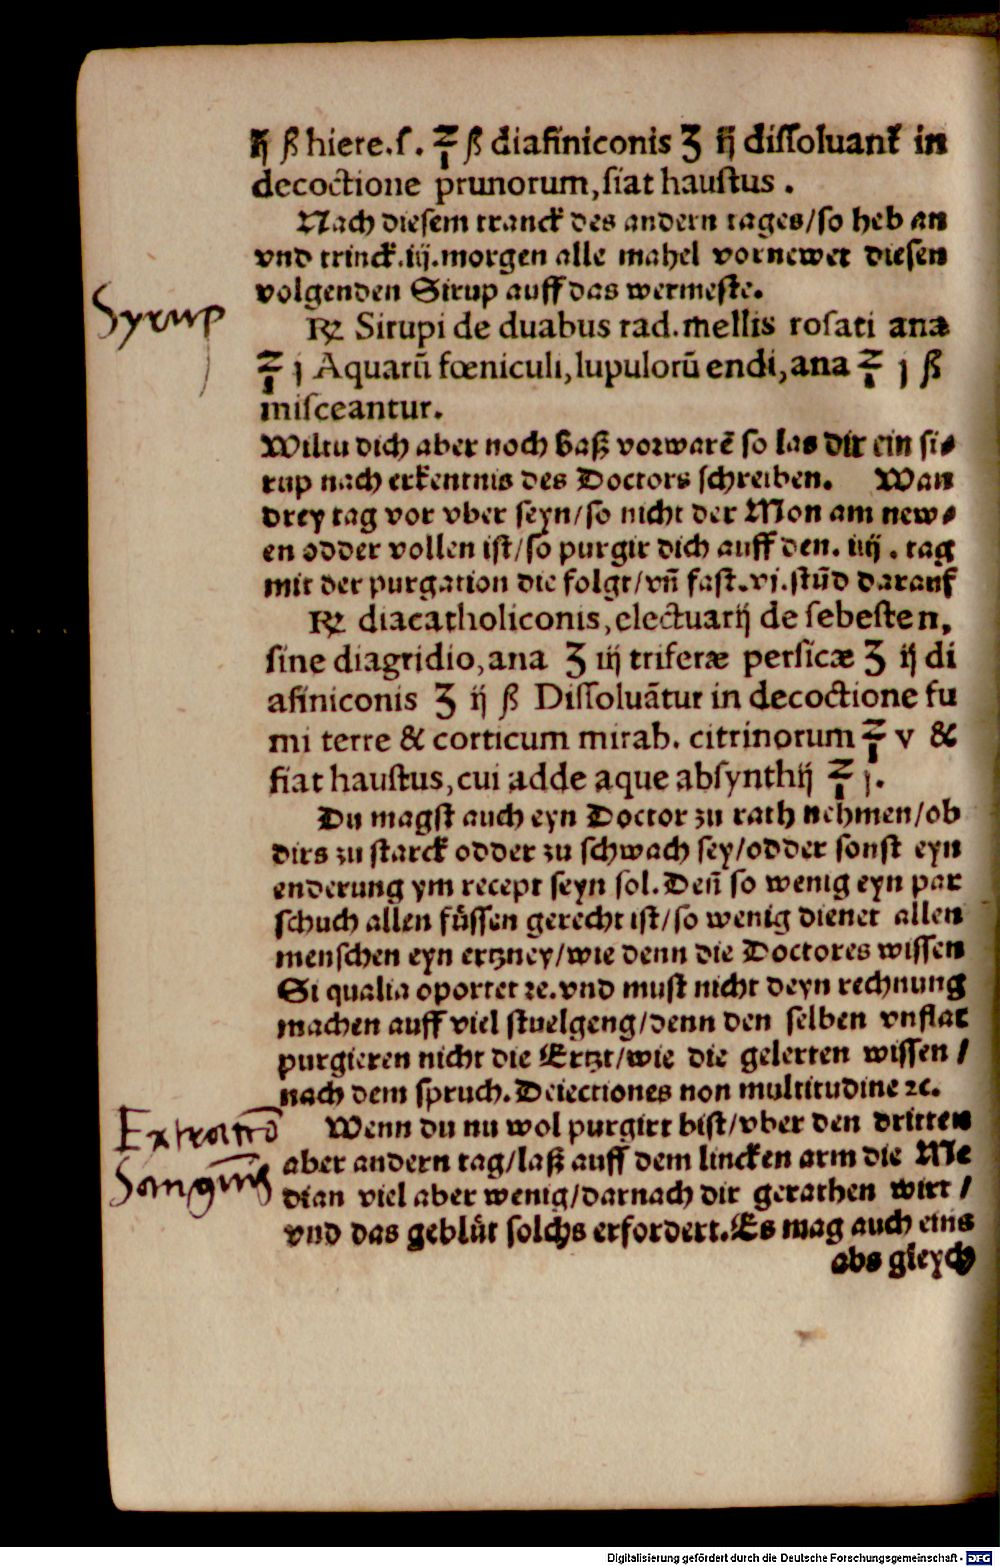 ij ß hiere.ſ. ℥ ß diafiniconis ʒ ij diſſoluant᷑ in
decoctione prunorum, fiat hauſtus .
Nach dieſem tranck des andern tages/ſo heb an
vnd trinck.iij.morgen alle mahel vornewet dieſen
volgenden Sirup auff das wermeſte.
Syrup
℞ Sirupi de duabus rad.mellis roſati ana
℥ j Aquarũ fœniculi,lupulorũ endi,ana ℥ j ß
miſceantur.
Wiltu dich aber noch baß vorwarẽ ſo las dir ein ſi⸗
rup nach erkentnis des Doctors ſchreiben. Wan
drey tag vor vber ſeyn/ſo nicht der Mon am new⸗
en odder vollen iſt/ſo purgir dich auff den. iiij . tag
mit der purgation die folgt/vñ faſt.vj.ſtũd darauf
℞ diacatholiconis,electuarij de ſebeſten,
ſine diagridio,ana ʒ iij triferæ perſicæ ʒ ij di
afiniconis ʒ ij ß Diſſoluãtur in decoctione fu
mi terre & corticum mirab. citrinorum ℥ v &
fiat hauſtus,cui adde aque abſynthij ℥ j.
Du magſt auch eyn Doctor zu rath nehmen/ob
dirs zu ſtarck odder zu ſchwach ſey/odder ſonſt eyn
enderung ym recept ſeyn ſol.Deñ ſo wenig eyn par
ſchuch allen fuͤſſen gerecht iſt/ſo wenig dienet allen
menſchen eyn ertzney/wie denn die Doctores wiſſen
Si qualia oportet ꝛc.vnd muſt nicht deyn rechnung
machen auff viel ſtuelgeng/denn den ſelben vnflat
purgieren nicht die Ertzt/wie die gelerten wiſſen /
nach dem ſpruch.Deiectiones non multitudine ꝛc.
Extractõ
Sanguĩs
Wenn du nu wol purgirt biſt/vber den dritten
aber andern tag/laß auff dem lincken arm die Me
dian viel aber wenig/darnach dir gerathen wirt /
vnd das gebluͤt ſolchs erfordert.Es mag auch eins
abs gleych
Digitalisierung gefördert durch die Deutsche Forschungsgemeinschaft - DFG